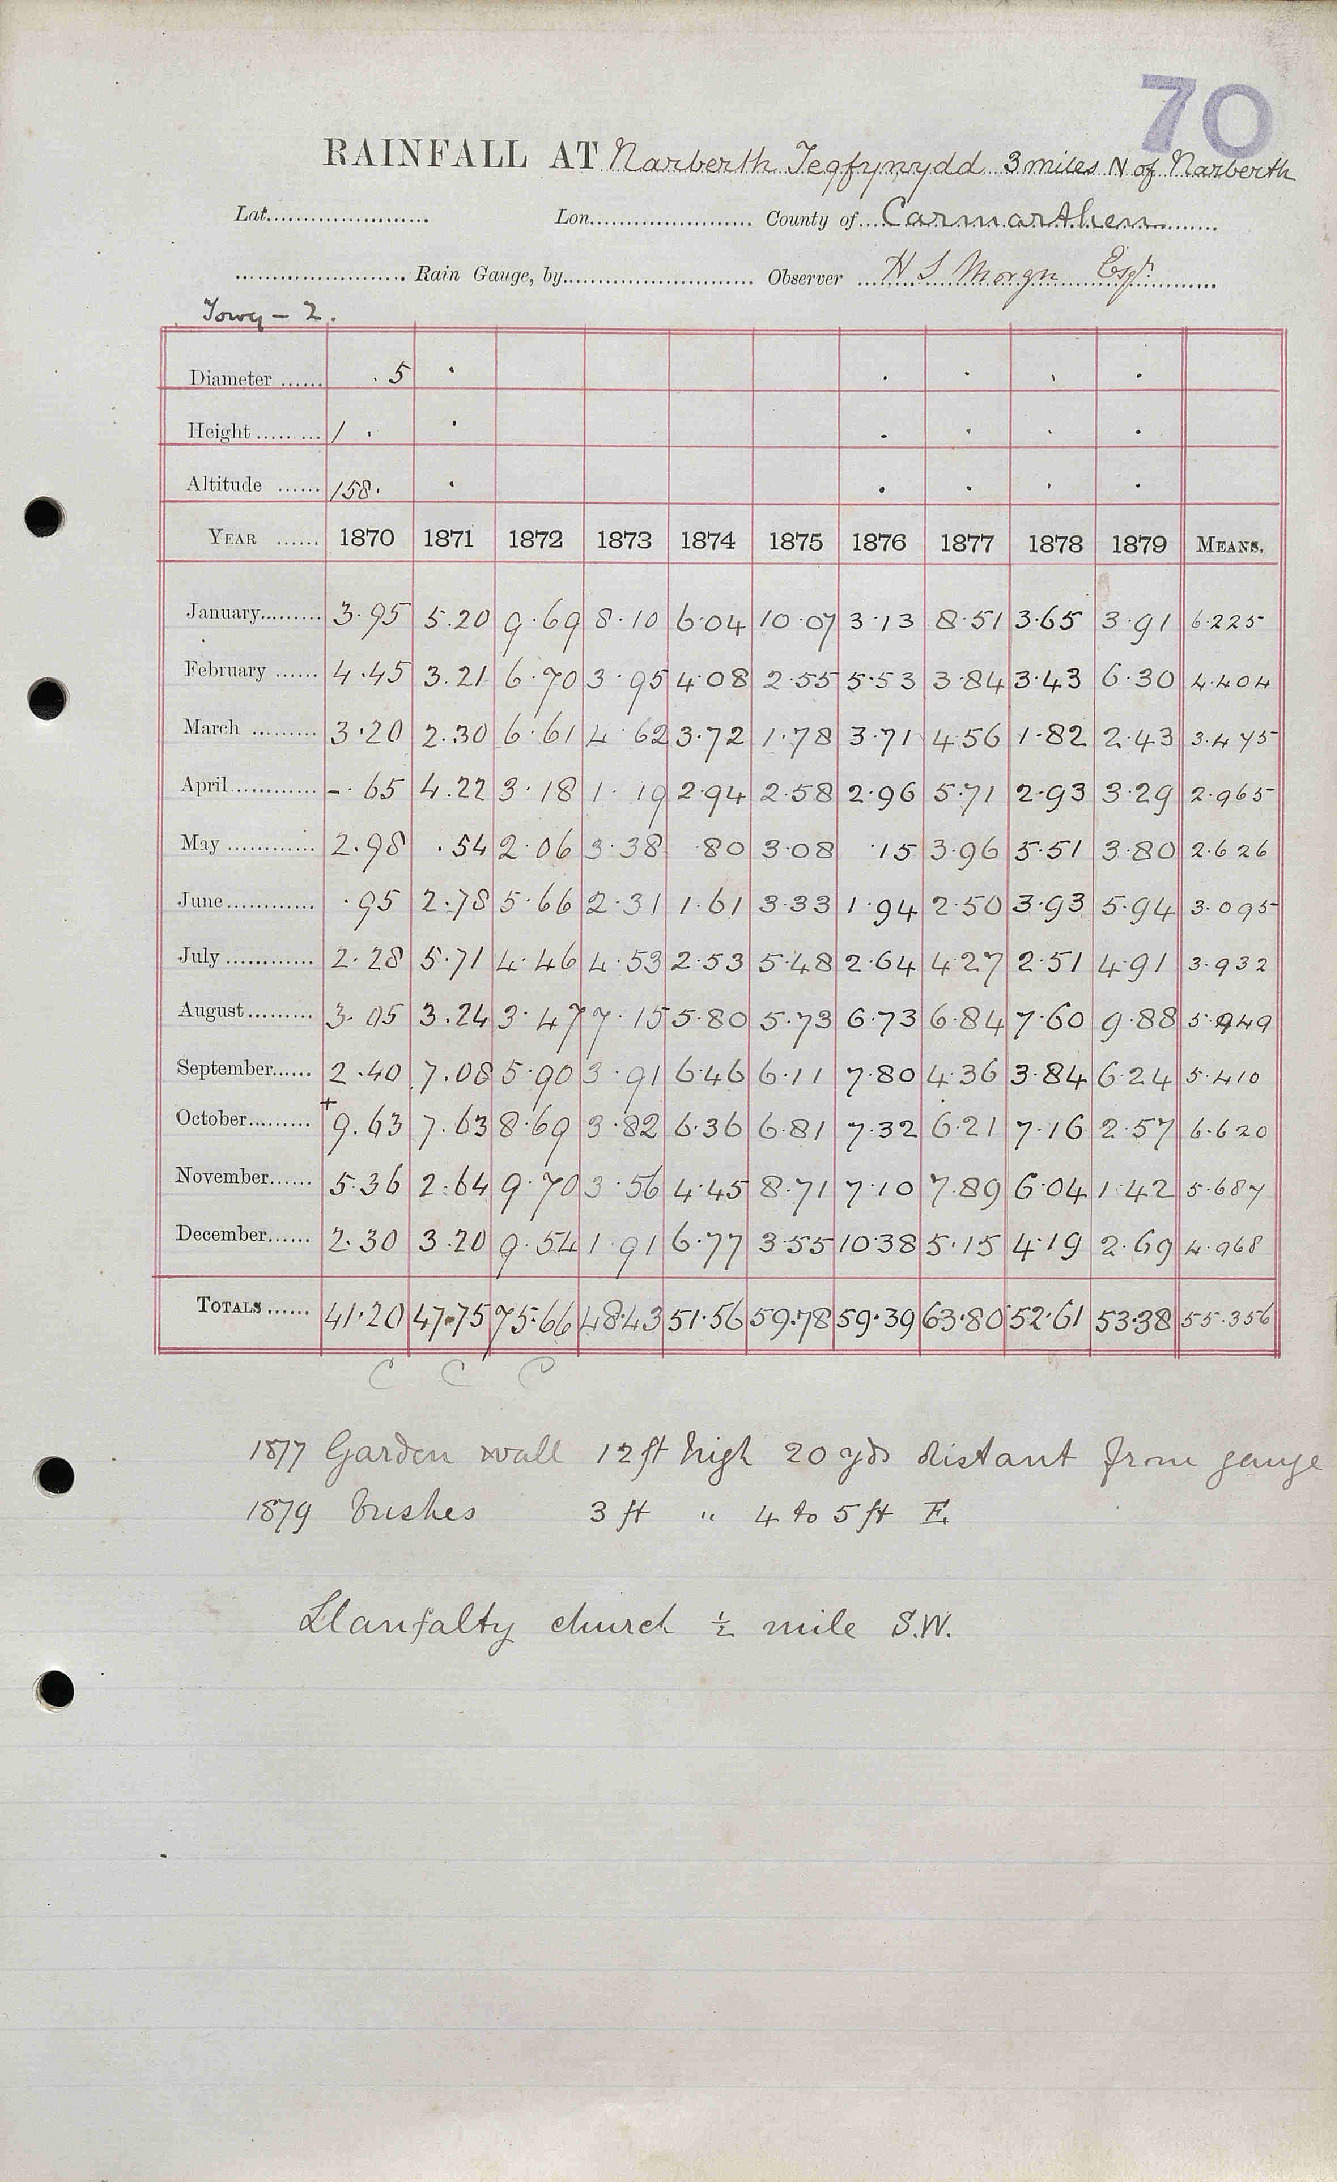 70
RAINFALL AT Narberth Tegfynydd 3 miles N of Narberth
Lat. Lon. County of Carmarthen
Rain Gauge, by Observer H S Morgn Esqr
Towy - 2.
Diameter 5
Height 1
Altitude 158
YEAR 1870 1871 1872 1873 1874 1875 1876 1877 1878 1879 MEANS.
January 3.95 5.20 9.69 8.10 6.04 10.07 3.13 8.51 3.65 3.91 6.225
February 4.45 3.21 6.70 3.95 4.08 2.55 5.53 3.84 3.43 6.30 4.404
March 3.20 2.30 6.61 4.62 3.72 1.78 3.71 4.56 1.82 2.43 3.475
April -.65 4.22 3.18 1.19 2.94 2.58 2.96 5.71 2.93 3.29 2.965
May 2.98 .54 2.06 3.38 .80 3.08 .15 3.96 5.51 3.80 2.626
June .95 2.78 5.66 2.31 1.61 3.33 1.94 2.50 3.93 5.94 3.095
July 2.28 5.71 4.46 4.53 2.53 5.48 2.64 4.27 2.51 4.91 3.932
August 3.05 3.24 3.47 7.15 5.80 5.73 6.73 6.84 7.60 9.88 5.949
September 2.40 7.08 5.90 3.91 6.46 6.11 7.80 4.36 3.84 6.24 5.410
October +9.63 7.63 8.69 3.82 6.36 6.81 7.32 6.21 7.16 2.57 6.620
November 5.36 2.64 9.70 3.56 4.45 8.71 7.10 7.89 6.04 1.42 5.687
December 2.30 3.20 9.54 1.91 6.77 3.55 10.38 5.15 4.19 2.69 4.968
TOTALS 41.20 47.75 75.66 48.43 51.56 59.78 59.39 63.80 52.61 53.38 55.356
C C C
1877 Garden wall 12 ft high 20 yds distant from gauge
1879 Bushes 3 ft " 4 to 5 ft E.
Llanfalty church ½ mile S.W.